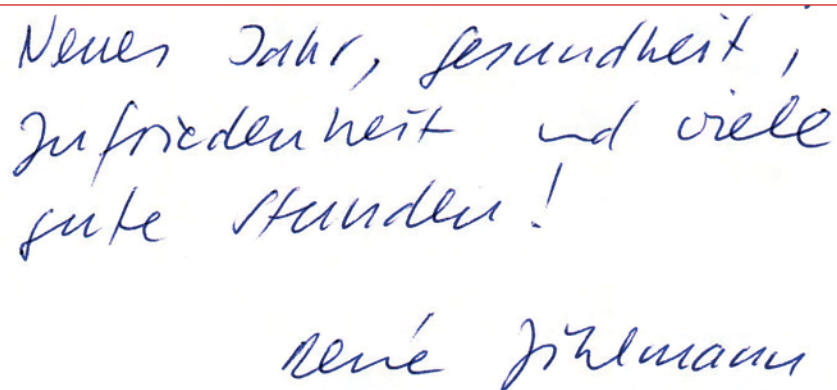 Neues Jahr, Gesundheit,
Zufriedenheit und viele
gute Stunden!
René Zihlmann